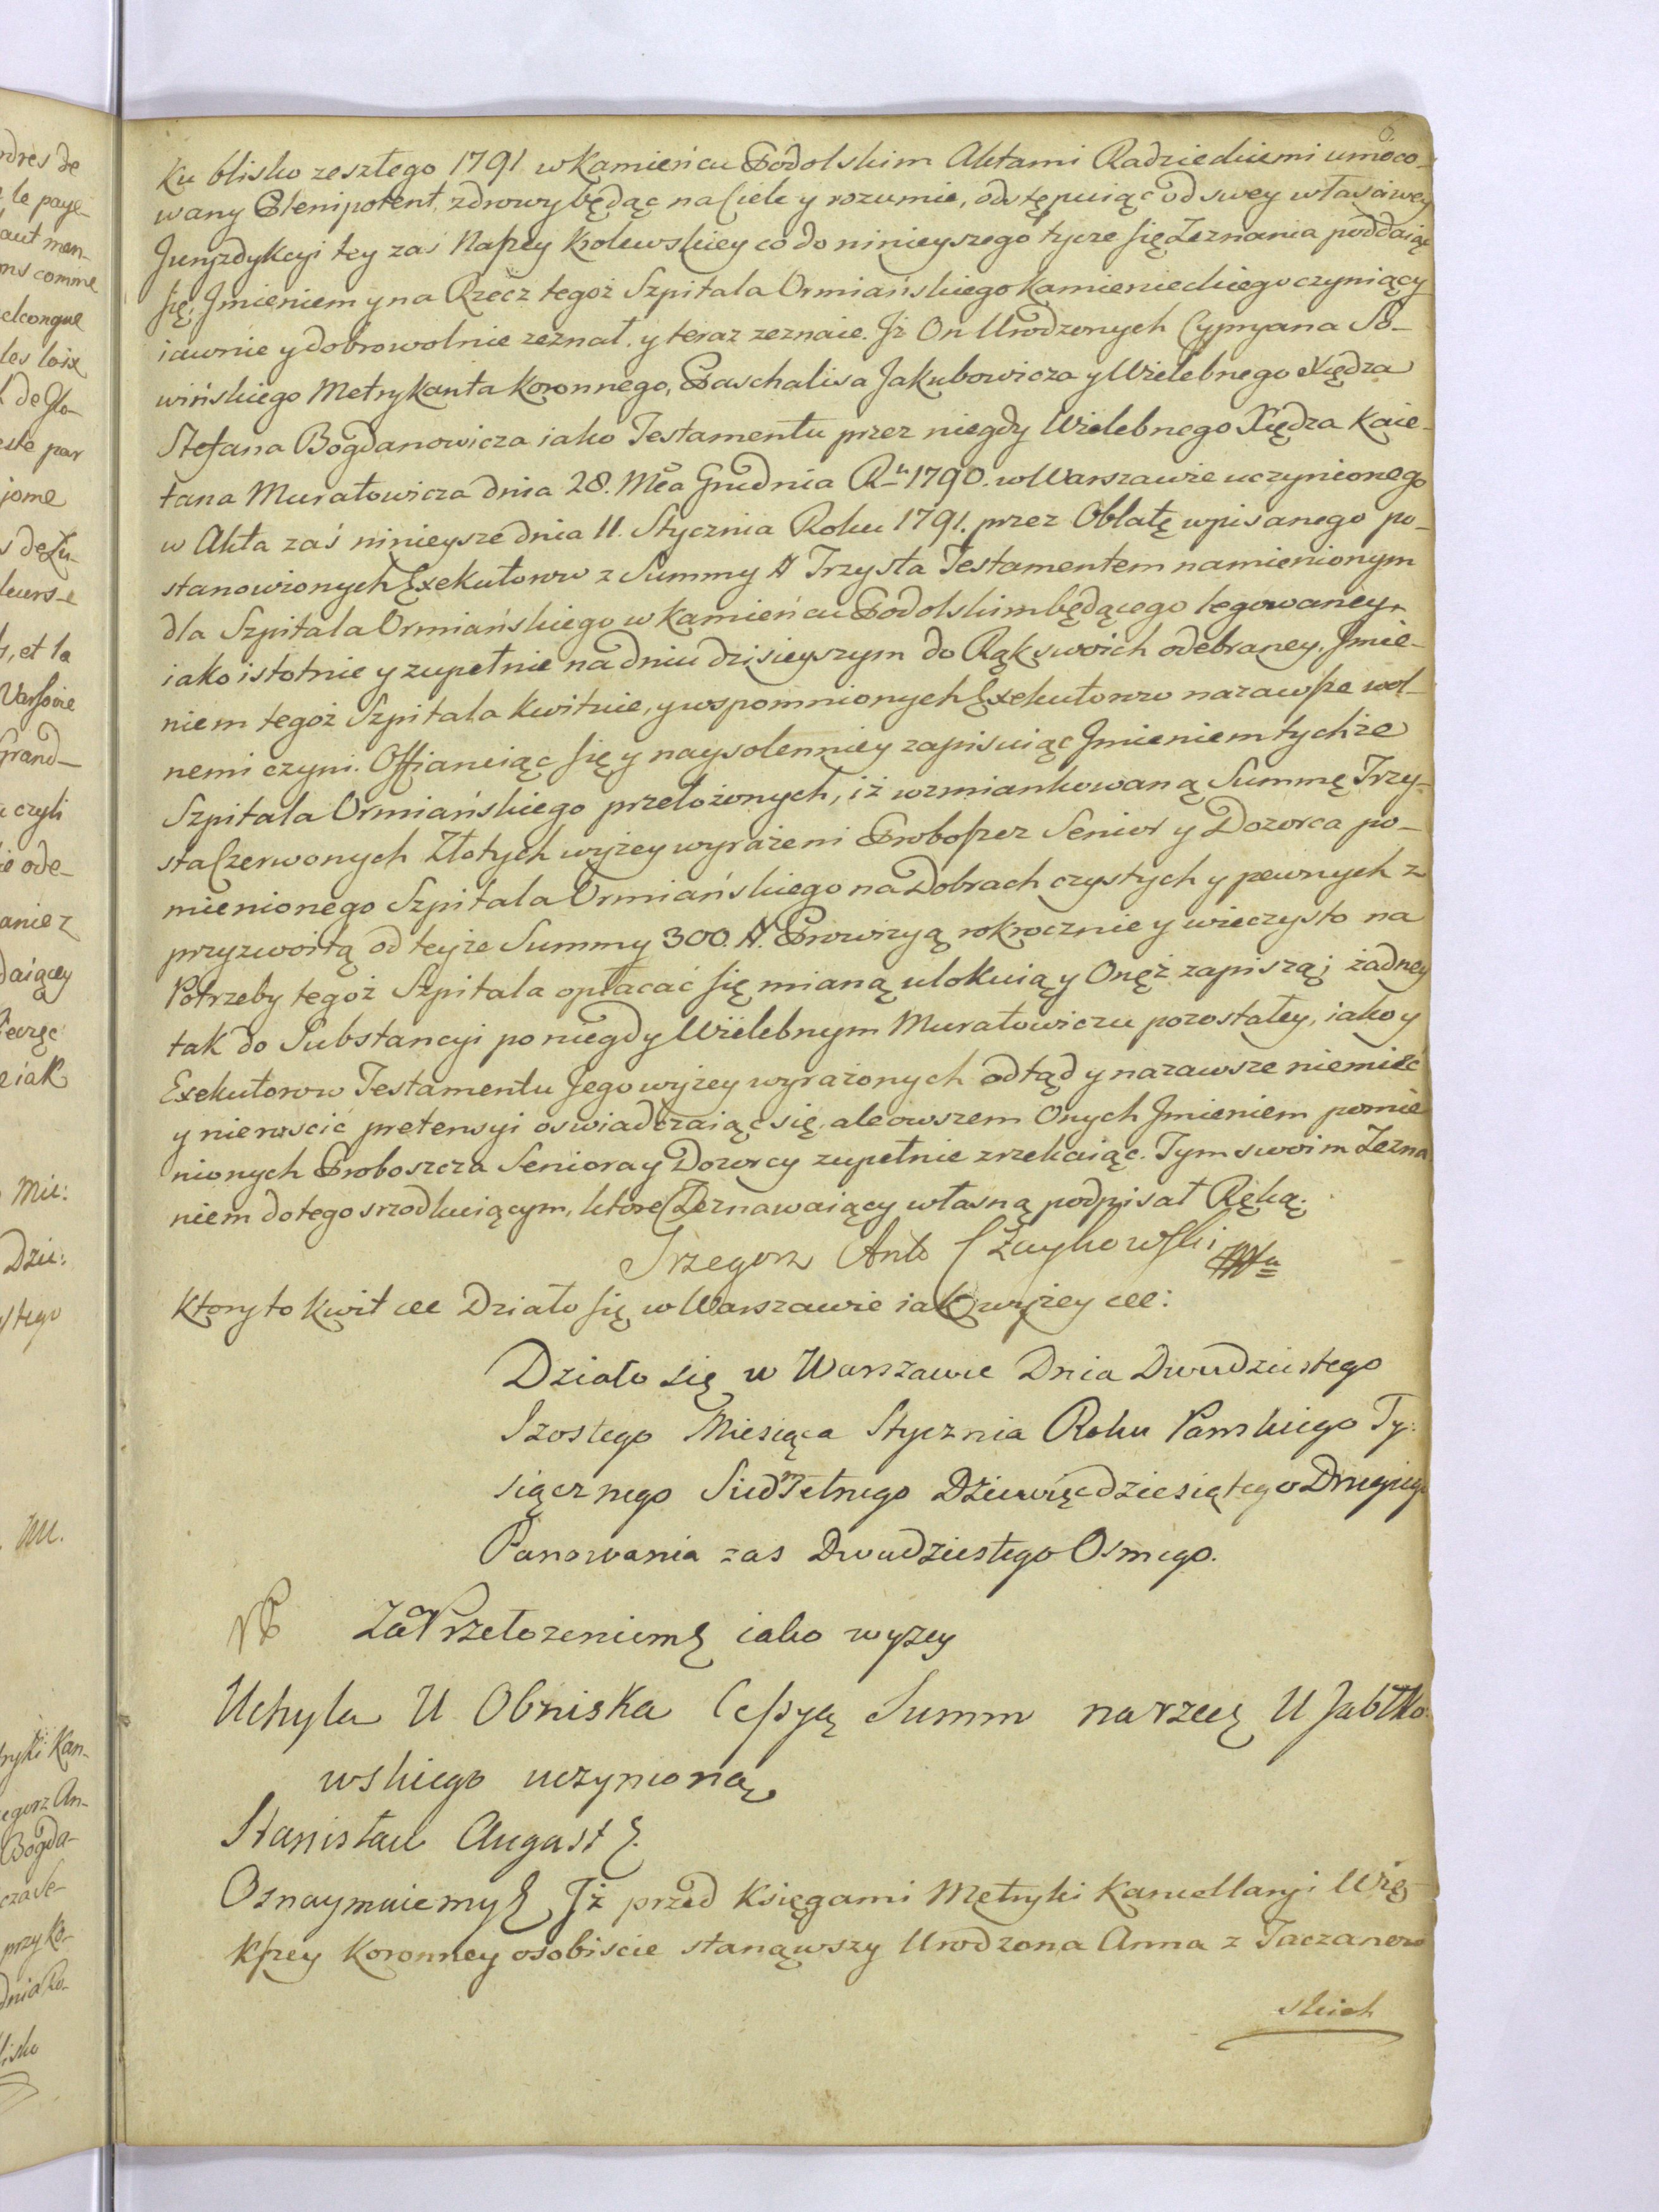 6.
ku blisko zeszłego 1791 w Kamieńcu Podolskim Aktami Radzieckiemi umoco-
wany Plenipotent, zdrowy będąc na Ciele y rozumie, odstępuiąc od swey właściwey
Juryzdykcyi tey zaś Naszey Krolewskiey co do ninieyszego tycze się Zeznania poddaiąc
się; Jmieniem y na Rzecz tegoż Szpitala Ormiańskiego Kamienieckiego czyniący
iawnie y dobrowolnie zeznał. y teraz zeznaie. Jż On Urodzonych Cypryana So-
wińskiego Metrykanta Koronnego, Paschalisa Jakubowicza y Wielebnego Xiędza
Stefana Bogdanowicza iako Testamentu przez niegdy Wielebnego Xiędza Kaie-
tana Muratowicza dnia 28. Mca Grudnia Ru 1790. w Warszawie uczynionego
w Akta zaś ninieysze dnia 11. Stycznia Roku 1791. przez Oblatę wpisanego po-
stanowionych Exekutorow z Summy # Trzysta Testamentem namienionym
dla Szpitala Ormiańskiego w Kamieńcu Podolskim będącego legowaney,
iako istotnie y zupełnie na dniu dzisieyszym do Rąk swoich odebraney. Jmie-
niem tegoż Szpitala kwituie, y wspomnionych Exekutorow nazawsze wol-
nemi czyni. Offiaruiąc się y naysolenniey zapisuiąc Jmieniem tychże
Szpitala Ormiańskiego przełożonych, iż wzmiankowaną Summę Trzy-
sta Czerwonych Złotych wyżey wyrażeni Proboszcz Senior y Dozorca po-
mienionego Szpitala Ormiańskiego na Dobrach czystych y pewnych z
przyzwoitą od teyże Summy 300. #. Prowizyą rokrocznie y wieczysto na
Potrzeby tegoż Szpitala opłacać się mianą ulokuią y Onęż zapiszą; żadney
tak do Substancyi po niegdy Wielebnym Muratowiczu pozostałey, iako y
Exekutorow Testamentu Jego wyżey wyrażonych odtąd y nazawsze niemieć
y nierościć pretensyi oswiadczaiąc się, ale owszem Onych Jmieniem pomie
nionych Proboszcza Seniora y Dozorcy zupełnie zrzekaiąc. Tym swoim Zezna
niem do tego srzodkuiącym, ktore Zeznawaiący własną podpisał Ręką.
Grzegorz Anto Czaykowski
Ktory to kwit &c Działo się w Warszawie iak wyżey &c:
Działo się w Warszawie Dnia Dwudziestego
Szostego Miesiąca Stycznia Roku Panskiego Ty:
siącznego Siedmsetnego Dziewięćdziesiątego Drugiego
Panowania zas Dwudziestego Osmego.
Za Przełożeniem &c iako wyzey
Uchyla U Obniska Cessyą Summ na rzecz U Jabłko-
wskiego uczynioną
Stanisław August &.
Oznaymuiemy &. Jż przed Księgami Metryki Kancellaryi Wię
kszey Koronney osobiscie stanąwszy Urodzona Anna z Taczanow
skich
ndres de
le paye-
aut men-
ns comme
elconque
les loix
este par
et la
Varsovie
Grand-
czyli
ie ode-
anie z
daiącey
iak
Mie:
Dzie:
ryki Kan-
egorz An-
Bogda-
przy Ko-
dnia Ro-
lisko